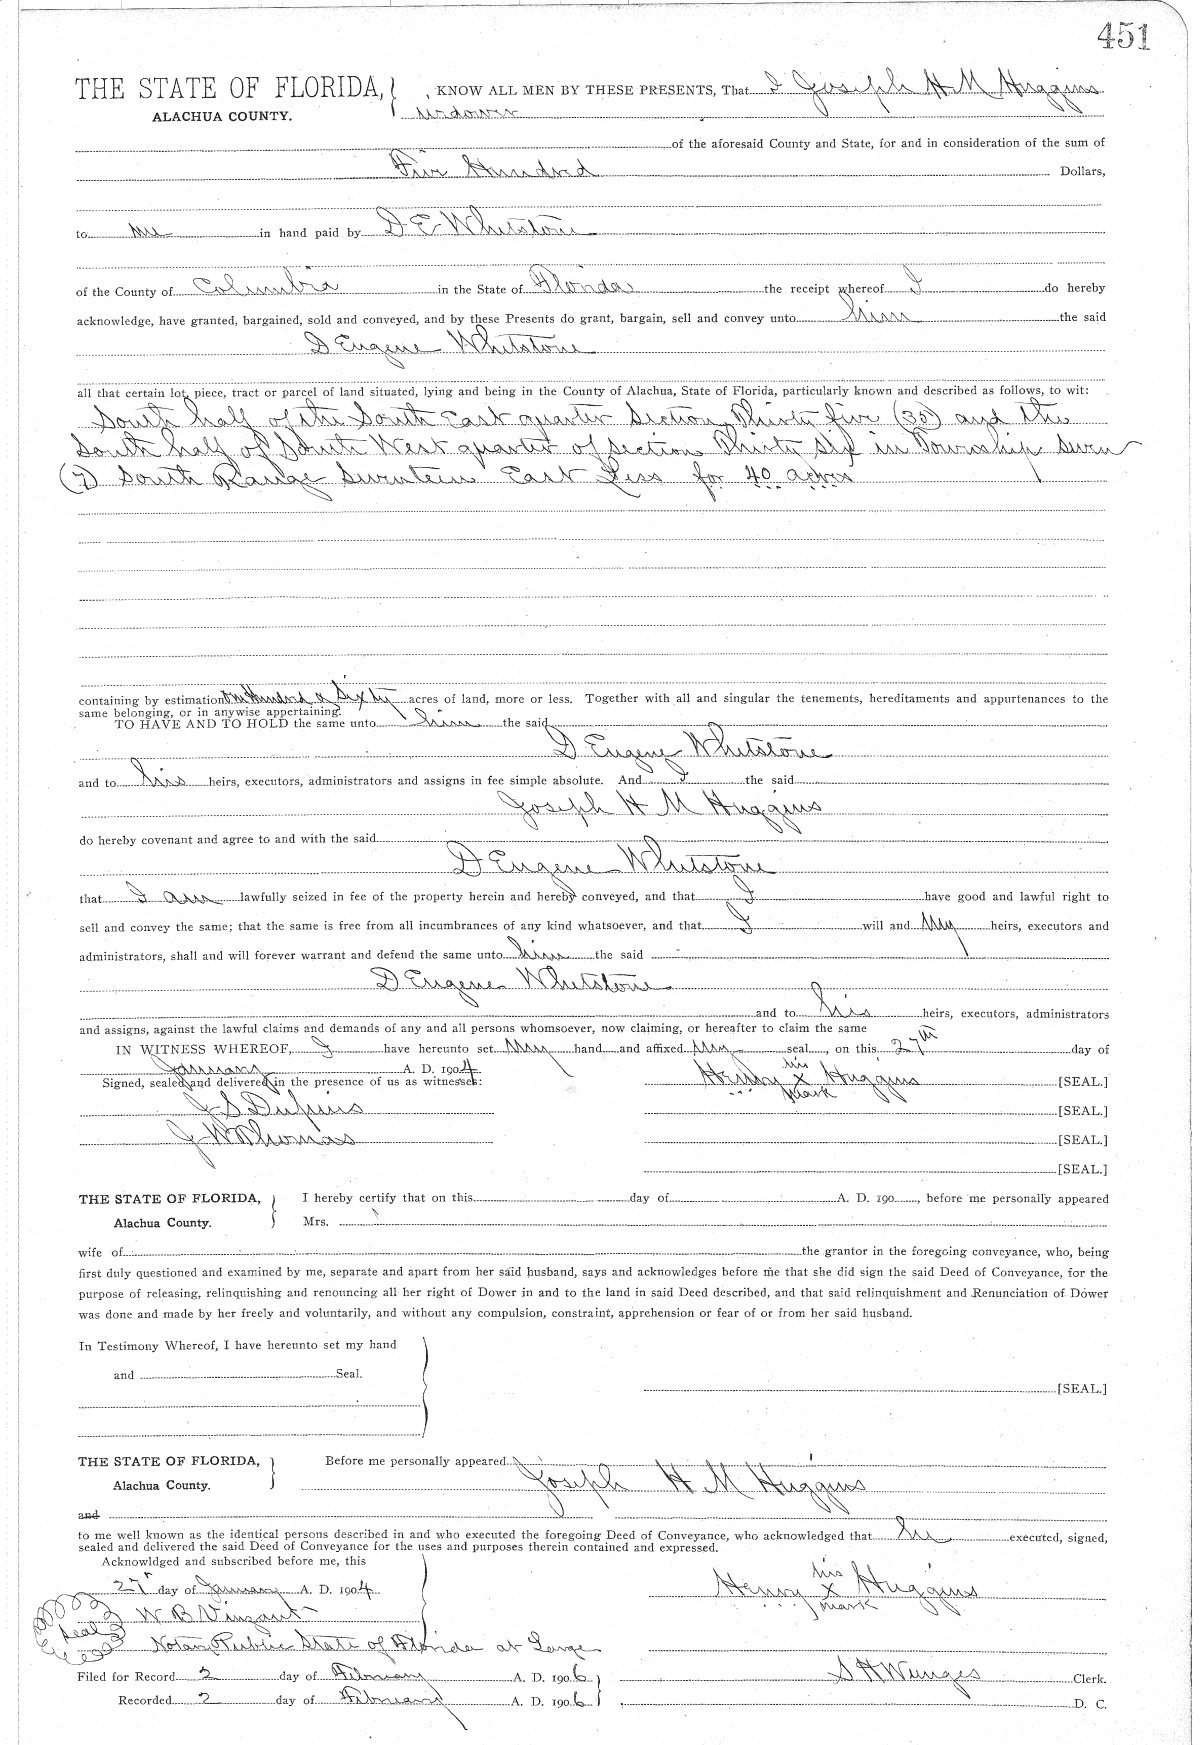 451
THE STATE OF FLORIDA, KNOW ALL MEN BY THESE PRESENTS, That I Joseph H M Huggins
ALACHUA COUNTY. widower
of the aforesaid County and State, for and in consideration of the sum of
Five Hundred Dollars,
to me in hand paid by D E Whitstone
of the County of Columbia in the State of Florida the receipt whereof I do hereby
acknowledge, have granted, bargained, sold and conveyed, and by these Presents do grant, bargain, sell and convey unto him the said
D Eugene Whitstone
all that certain lot, piece, tract or parcel of land situated, lying and being in the County of Alachua, State of Florida, particularly known and described as follows, to wit:
South half of the South East quarter Section Thirty five (35) and the
South half of South West quarter of section Thirty Six in Township Seven
(7) South Range Seventeen East Less for 40 acres
containing by estimation One Hundred & Sixty acres of land, more or less. Together with all and singular the tenements, hereditaments and appurtenances to the
same belonging, or in anywise appertaining.
TO HAVE AND TO HOLD the same unto him the said
D Eugene Whitstone
and to his heirs, executors, administrators and assigns in fee simple absolute. And I the said
Joseph H M Huggins
do hereby covenant and agree to and with the said
D Eugene Whitstone
that I am lawfully seized in fee of the property herein and hereby conveyed, and that I have good and lawful right to
sell and convey the same; that the same is free from all incumbrances of any kind whatsoever, and that I will and My heirs, executors and
administrators, shall and will forever warrant and defend the same unto him the said
D Eugene Whitstone
and to his heirs, executors, administrators
and assigns, against the lawful claims and demands of any and all persons whomsoever, now claiming, or hereafter to claim the same
IN WITNESS WHEREOF, I have hereunto set My hand and affixed My seal, on this 27th day of
January A. D. 1904 his
Signed, sealed and delivered in the presence of us as witnesses: Henry X Huggins [SEAL.]
mark
J S Dupuis [SEAL.]
J W Thomas [SEAL.]
[SEAL.]
THE STATE OF FLORIDA, I hereby certify that on this day of A. D. 190, before me personally appeared
Alachua County. Mrs.
wife of the grantor in the foregoing conveyance, who, being
first duly questioned and examined by me, separate and apart from her said husband, says and acknowledges before me that she did sign the said Deed of Conveyance, for the
purpose of releasing, relinquishing and renouncing all her right of Dower in and to the land in said Deed described, and that said relinquishment and Renunciation of Dower
was done and made by her freely and voluntarily, and without any compulsion, constraint, apprehension or fear of or from her said husband.
In Testimony Whereof, I have hereunto set my hand
and Seal.
[SEAL.]
THE STATE OF FLORIDA, Before me personally appeared
Alachua County. Joseph H M Huggins
and
to me well known as the identical persons described in and who executed the foregoing Deed of Conveyance, who acknowledged that he executed, signed,
sealed and delivered the said Deed of Conveyance for the uses and purposes therein contained and expressed.
Acknowldged and subscribed before me, this his
27 day of January A. D. 1904 Henry X Huggins
mark
W B Vinzant
Seal
Notary Public State of Florida at Large
Filed for Record 2 day of February A. D. 1906 S H Wienges Clerk.
Recorded 2 day of February A. D. 1906 D. C.